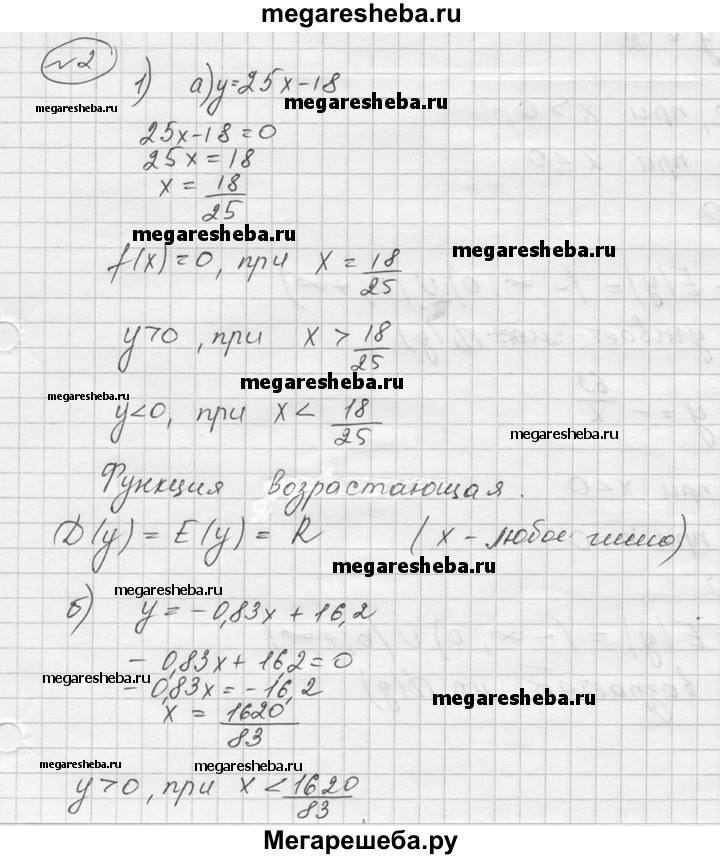 megaresheba.ru
№2
1) а) y=25x-18
megaresheba.ru
megaresheba.ru
25x-18=0
25x=18
x= 18/25
megaresheba.ru
megaresheba.ru
f(x)=0, при x= 18/25
y>0, при x> 18/25
megaresheba.ru
megaresheba.ru
y<0, при x< 18/25
megaresheba.ru
Функция возрастающая.
D(y)=E(y)=R (x-любое число)
megaresheba.ru
megaresheba.ru
б) y=-0,83x+16,2
-0,83x+16,2=0
megaresheba.ru
-0,83x=-16,2
megaresheba.ru
x= 1620/83
megaresheba.ru
megaresheba.ru
y>0, при x< 1620/83
Мегарешеба.ру